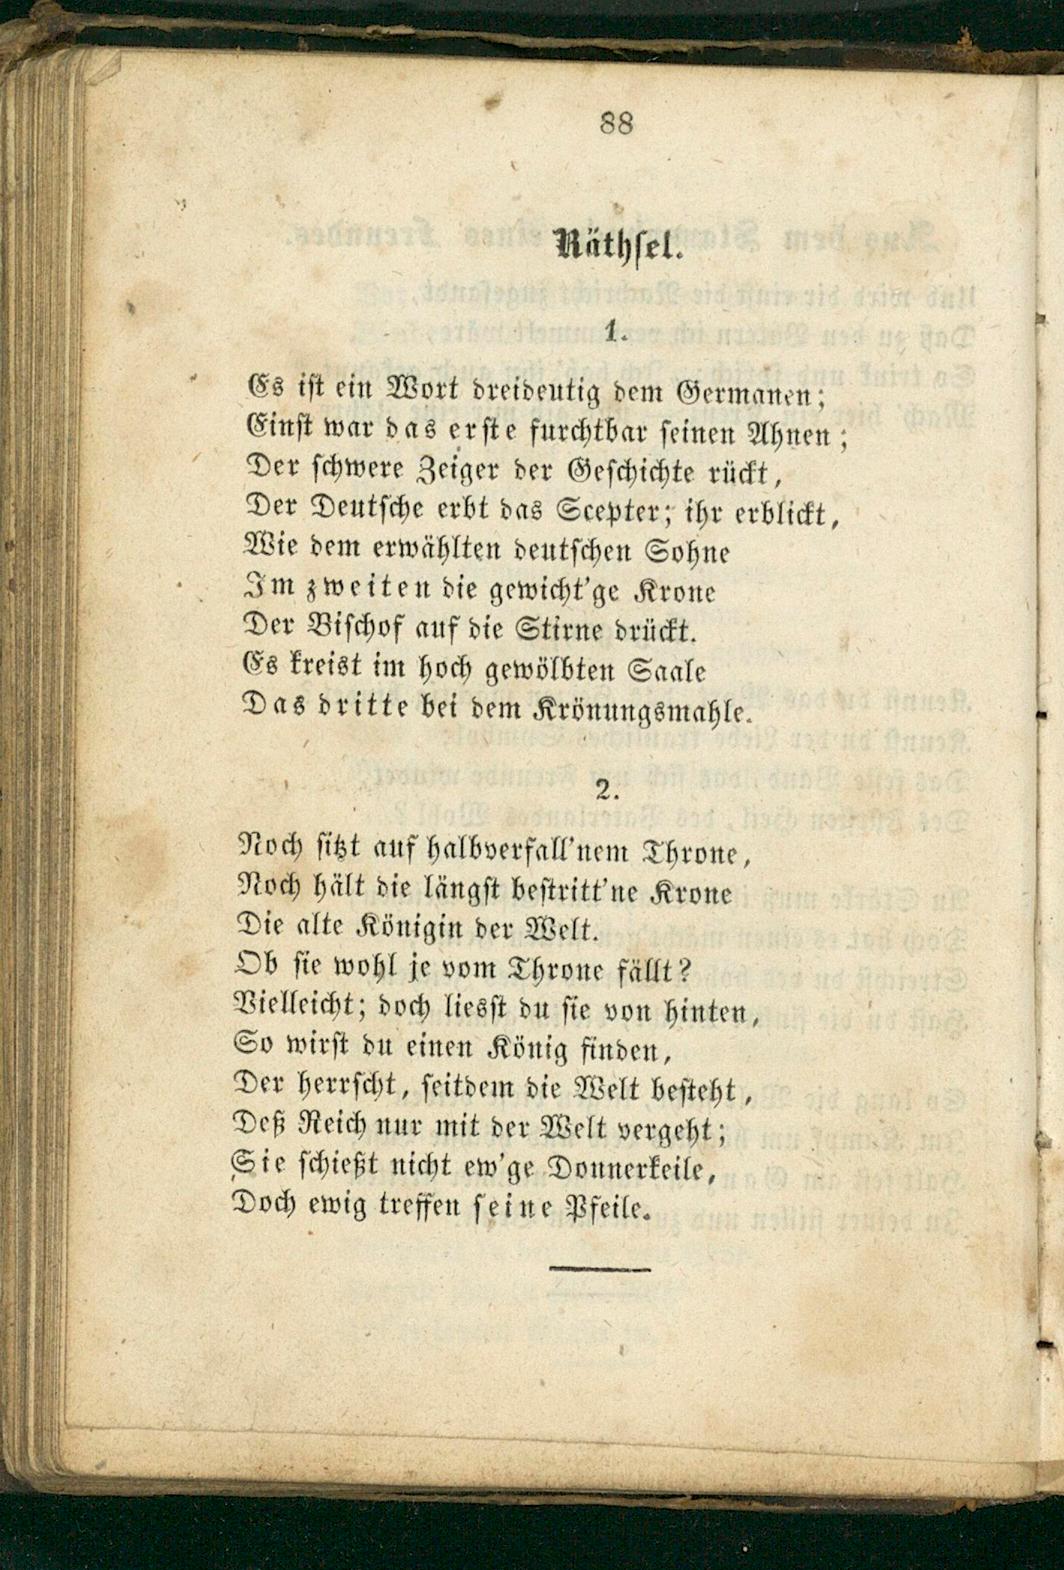 88
Räthsel.
1.
Es ist ein Wort dreideutig dem Germanen;
Einst war das erste furchtbar seinen Ahnen;
Der schwere Zeiger der Geschichte rückt,
Der Deutsche erbt das Scepter; ihr erblickt,
Wie dem erwählten deutschen Sohne
Im zweiten die gewicht'ge Krone
Der Bischof auf die Stirne drückt.
Es kreist im hoch gewölbten Saale
Das dritte bei dem Krönungsmahle.
2.
Noch sitzt auf halbverfall'nem Throne,
Noch hält die längst bestritt'ne Krone
Die alte Königin der Welt.
Ob sie wohl je vom Throne fällt?
Vielleicht; doch liesst du sie von hinten,
So wirst du einen König finden,
Der herrscht, seitdem die Welt besteht,
Deß Reich nur mit der Welt vergeht;
Sie schießt nicht ew'ge Donnerkeile,
Doch ewig treffen seine Pfeile.